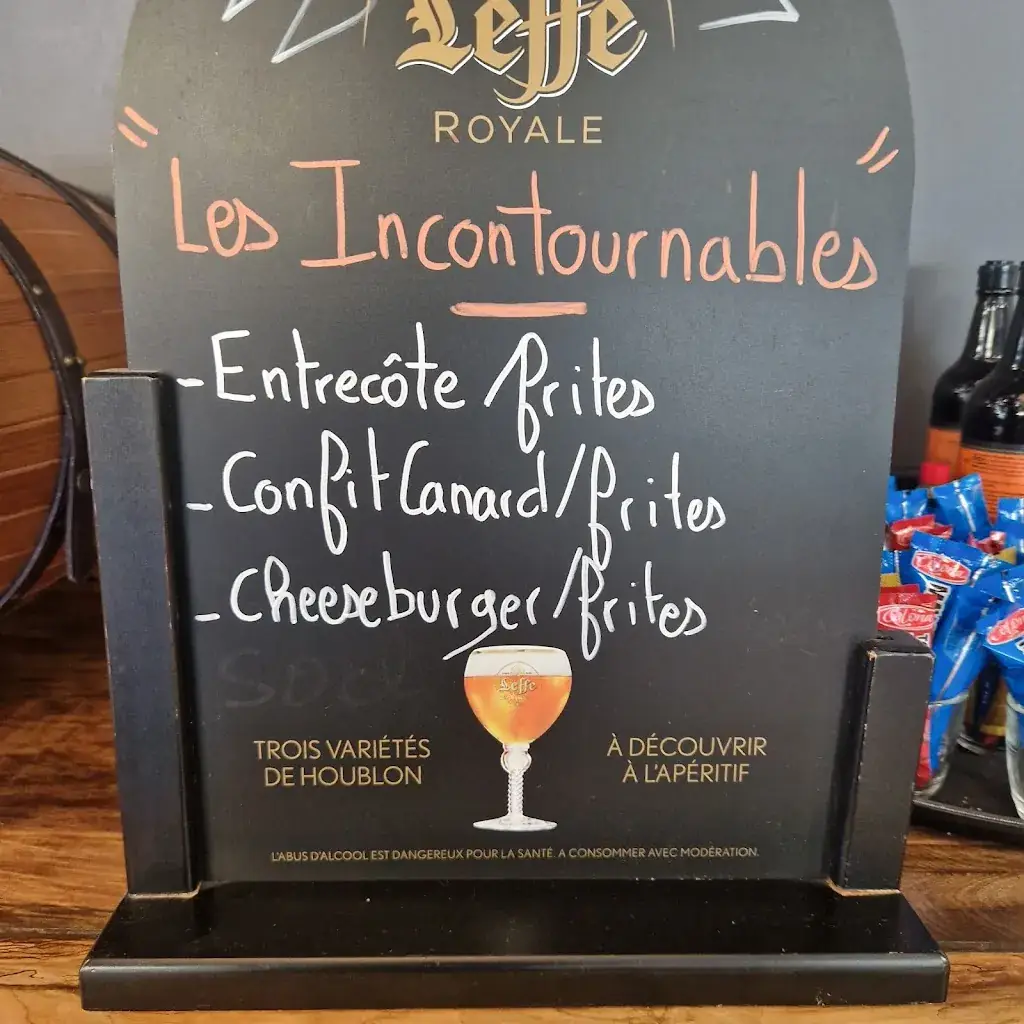 Leffe
ROYALE
"Les Incontournables"
- Entrecôte / frites
- Confit Canard / frites
- Cheeseburger / frites
Leffe
TROIS VARIÉTÉS
DE HOUBLON
À DÉCOUVRIR
À L'APÉRITIF
L'ABUS D'ALCOOL EST DANGEREUX POUR LA SANTÉ. A CONSOMMER AVEC MODÉRATION.
Colona